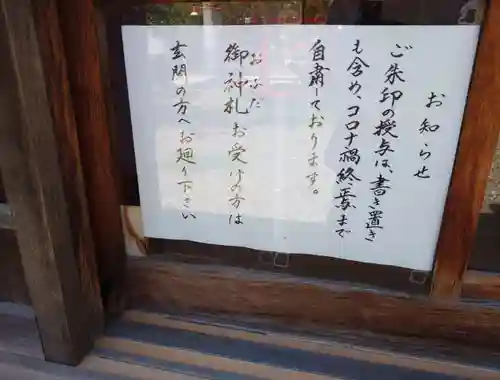 お知らせ
ご朱印の授与は、書き置き
も含め、コロナ禍終息まで
自粛しております。
おふだ
御神札お受けの方は
玄関の方へお廻り下さい